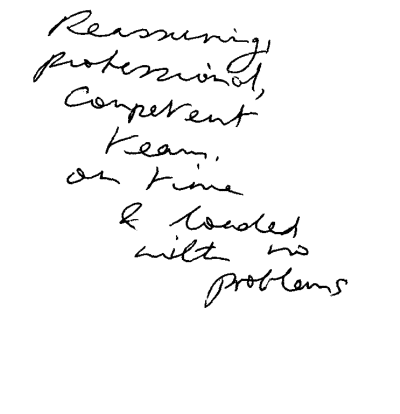 Reassuring,
professional,
competent
team.
on time
& loaded
with no
problems